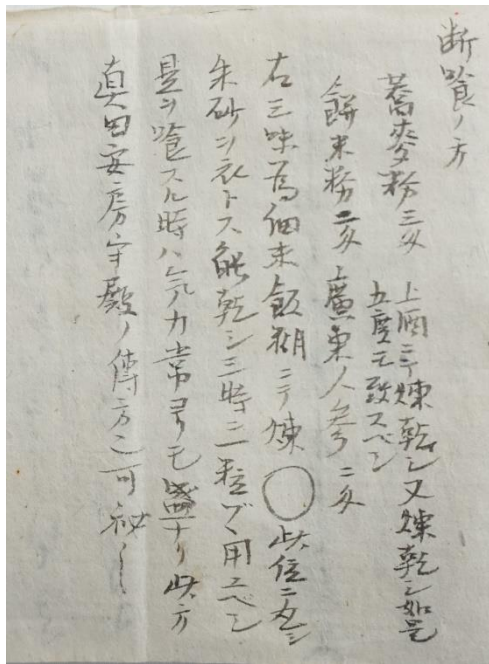 断喰ノ方
蕎麥粉三匁
上酒ニテ煉乾シ又煉乾シ如是
五度モ致スベシ
餅米粉二匁 廣東人参二匁
右三味為細末飯糊ニテ煉○此位ニ丸シ
朱砂ヲ衣トス能乾シ三時ニ一粒ヅヽ用ユベシ
是ヲ喰スル時ハ気力常ヨリモ盛ナリ此方
真田安房守殿ノ傳方也可秘〻